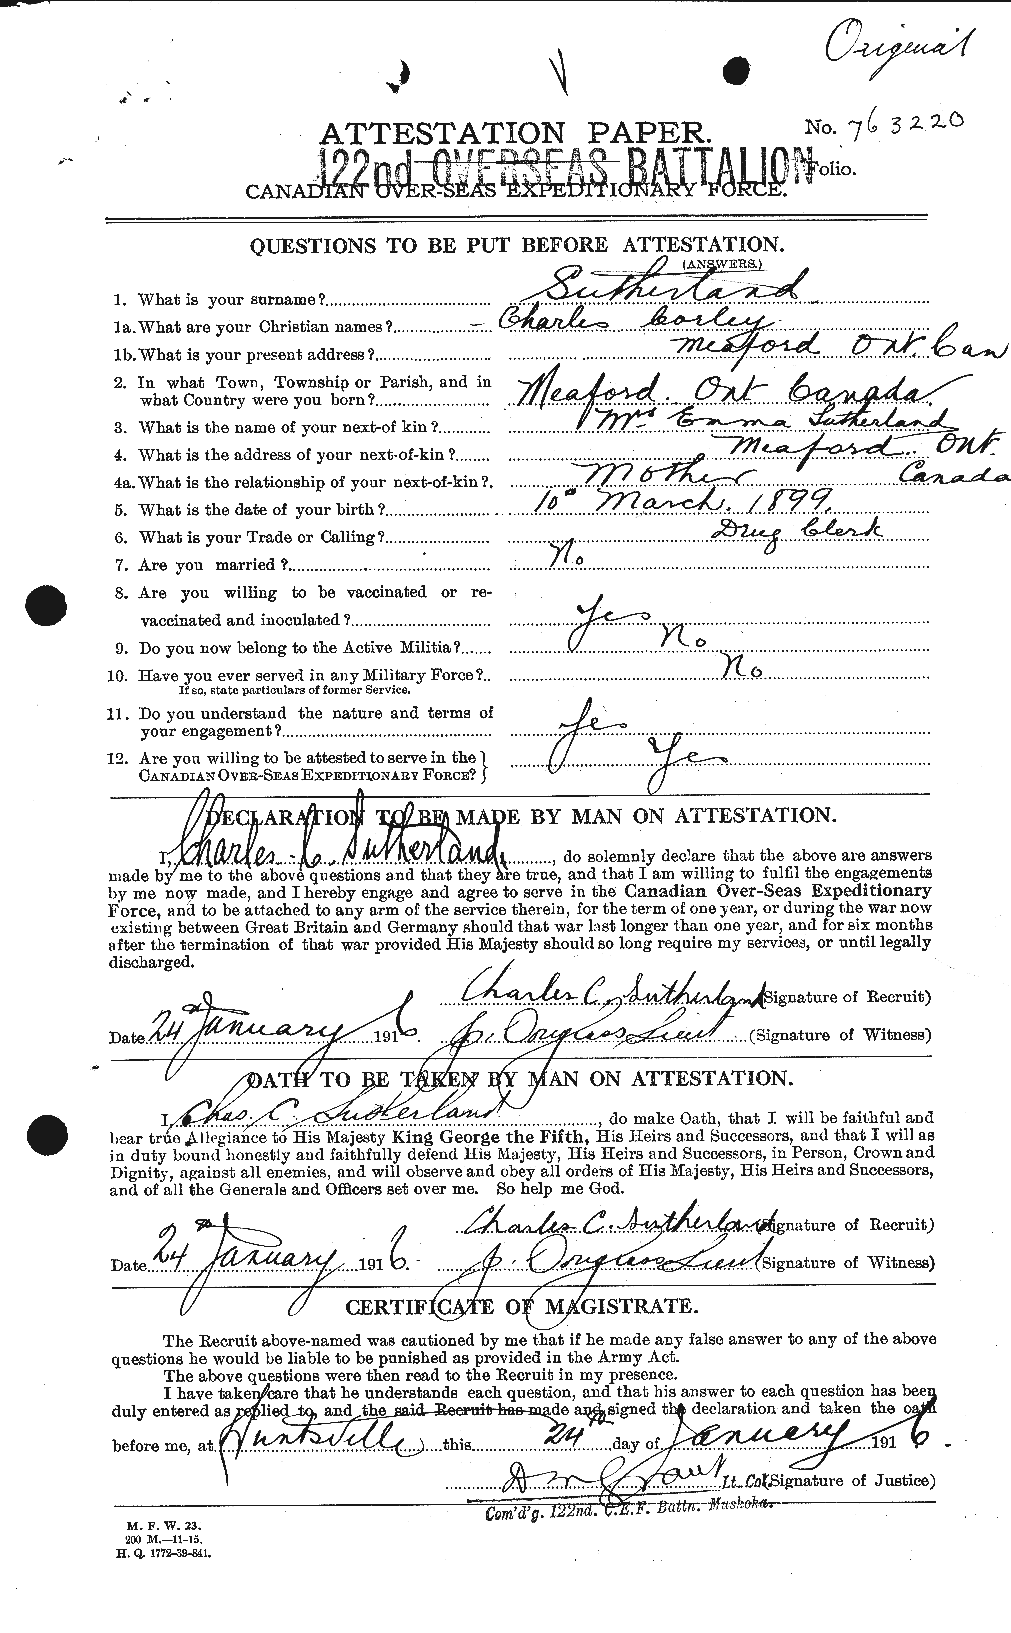 Original
ATTESTATION PAPER. No. 763220
122nd OVERSEAS BATTALION Folio.
CANADIAN OVER-SEAS EXPEDITIONARY FORCE.
QUESTIONS TO BE PUT BEFORE ATTESTATION.
(ANSWERS.)
1. What is your surname? Sutherland
1a. What are your Christian names? Charles Corley
1b. What is your present address? Meaford Ont. Can
2. In what Town, Township or Parish, and in
what Country were you born? Meaford. Ont Canada.
3. What is the name of your next-of kin? Mrs Emma Sutherland
4. What is the address of your next-of-kin? Meaford. Ont.
Canada
4a. What is the relationship of your next-of-kin? Mother
5. What is the date of your birth? 10th March, 1899.
6. What is your Trade or Calling? Drug Clerk
7. Are you married? No
8. Are you willing to be vaccinated or re-
vaccinated and inoculated? Yes
9. Do you now belong to the Active Militia? No
10. Have you ever served in any Military Force? No
If so, state particulars of former Service.
11. Do you understand the nature and terms of
your engagement? Yes
12. Are you willing to be attested to serve in the
CANADIAN OVER-SEAS EXPEDITIONARY FORCE? Yes
DECLARATION TO BE MADE BY MAN ON ATTESTATION.
I, Charles C. Sutherland, do solemnly declare that the above are answers
made by me to the above questions and that they are true, and that I am willing to fulfil the engagements
by me now made, and I hereby engage and agree to serve in the Canadian Over-Seas Expeditionary
Force, and to be attached to any arm of the service therein, for the term of one year, or during the war now
existing between Great Britain and Germany should that war last longer than one year, and for six months
after the termination of that war provided His Majesty should so long require my services, or until legally
discharged.
Charles C. Sutherland (Signature of Recruit)
Date 24th January 1916. J. Douglass Lieut (Signature of Witness)
OATH TO BE TAKEN BY MAN ON ATTESTATION.
I, Chas. C. Sutherland, do make Oath, that I will be faithful and
bear true Allegiance to His Majesty King George the Fifth, His Heirs and Successors, and that I will as
in duty bound honestly and faithfully defend His Majesty, His Heirs and Successors, in Person, Crown and
Dignity, against all enemies, and will observe and obey all orders of His Majesty, His Heirs and Successors,
and of all the Generals and Officers set over me. So help me God.
Charles C. Sutherland (Signature of Recruit)
Date 24th January 1916. J. Douglass Lieut (Signature of Witness)
CERTIFICATE OF MAGISTRATE.
The Recruit above-named was cautioned by me that if he made any false answer to any of the above
questions he would be liable to be punished as provided in the Army Act.
The above questions were then read to the Recruit in my presence.
I have taken care that he understands each question, and that his answer to each question has been
duly entered as replied to, and the said Recruit has made and signed the declaration and taken the oath
before me, at Huntsville this 24th day of January 1916.
D M Grant Lt. Col. (Signature of Justice)
Com'd'g. 122nd. C.E.F. Battn. Muskoka.
M. F. W. 23.
200 M.—11-15.
H. Q. 1772-39-841.